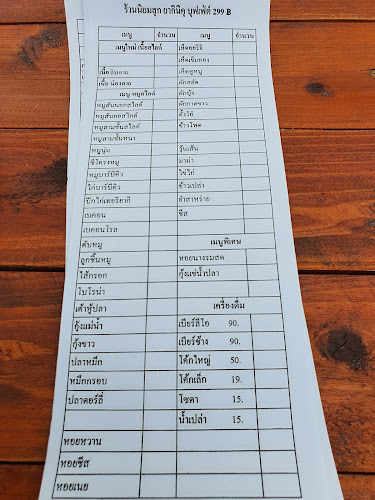 ร้านนิยมสุก ยากินิคุ บุฟเฟ่ต์ 299 B
เมนู จำนวน เมนู จำนวน
เมนูใหม่ เนื้อสไลด์ เห็ดออริจิ
เห็ดเข็มทอง
เนื้อ ติดลาย เห็ดหูหนู
เนื้อ น่องลาย ผักสลัด
เมนู หมูสไลด์ ผักบุ้ง
หมูสันนอกสไลด์ ผักกาดขาว
หมูสันคอสไลด์ ตั้งโอ๋
หมูสามชั้นสไลด์ ข้าวโพด
หมูสามชั้นหนา
หมูนุ่ม วุ้นเส้น
ซี่โครงหมู มาม่า
หมูบาร์บีคิว ไข่ไก่
ไก่บาร์บีคิว ข้าวเปล่า
ปีกไก่เทอริยากิ สาหร่าย
เบคอน ชีส
เบคอนโรล
ตับหมู เมนูพิเศษ
ลูกชิ้นหมู หอยนางรมสด
ไส้กรอก กุ้งแช่น้ำปลา
โบโรน่า
เต้าหู้ปลา เครื่องดื่ม
กุ้งแม่น้ำ เบียร์ลีโอ 90.
กุ้งขาว เบียร์ช้าง 90.
ปลาหมึก โค้กใหญ่ 50.
หมึกกรอบ โค้กเล็ก 19.
ปลาดอร์ลี่ โซดา 15.
น้ำเปล่า 15.
หอยหวาน
หอยชีส
หอยเนย